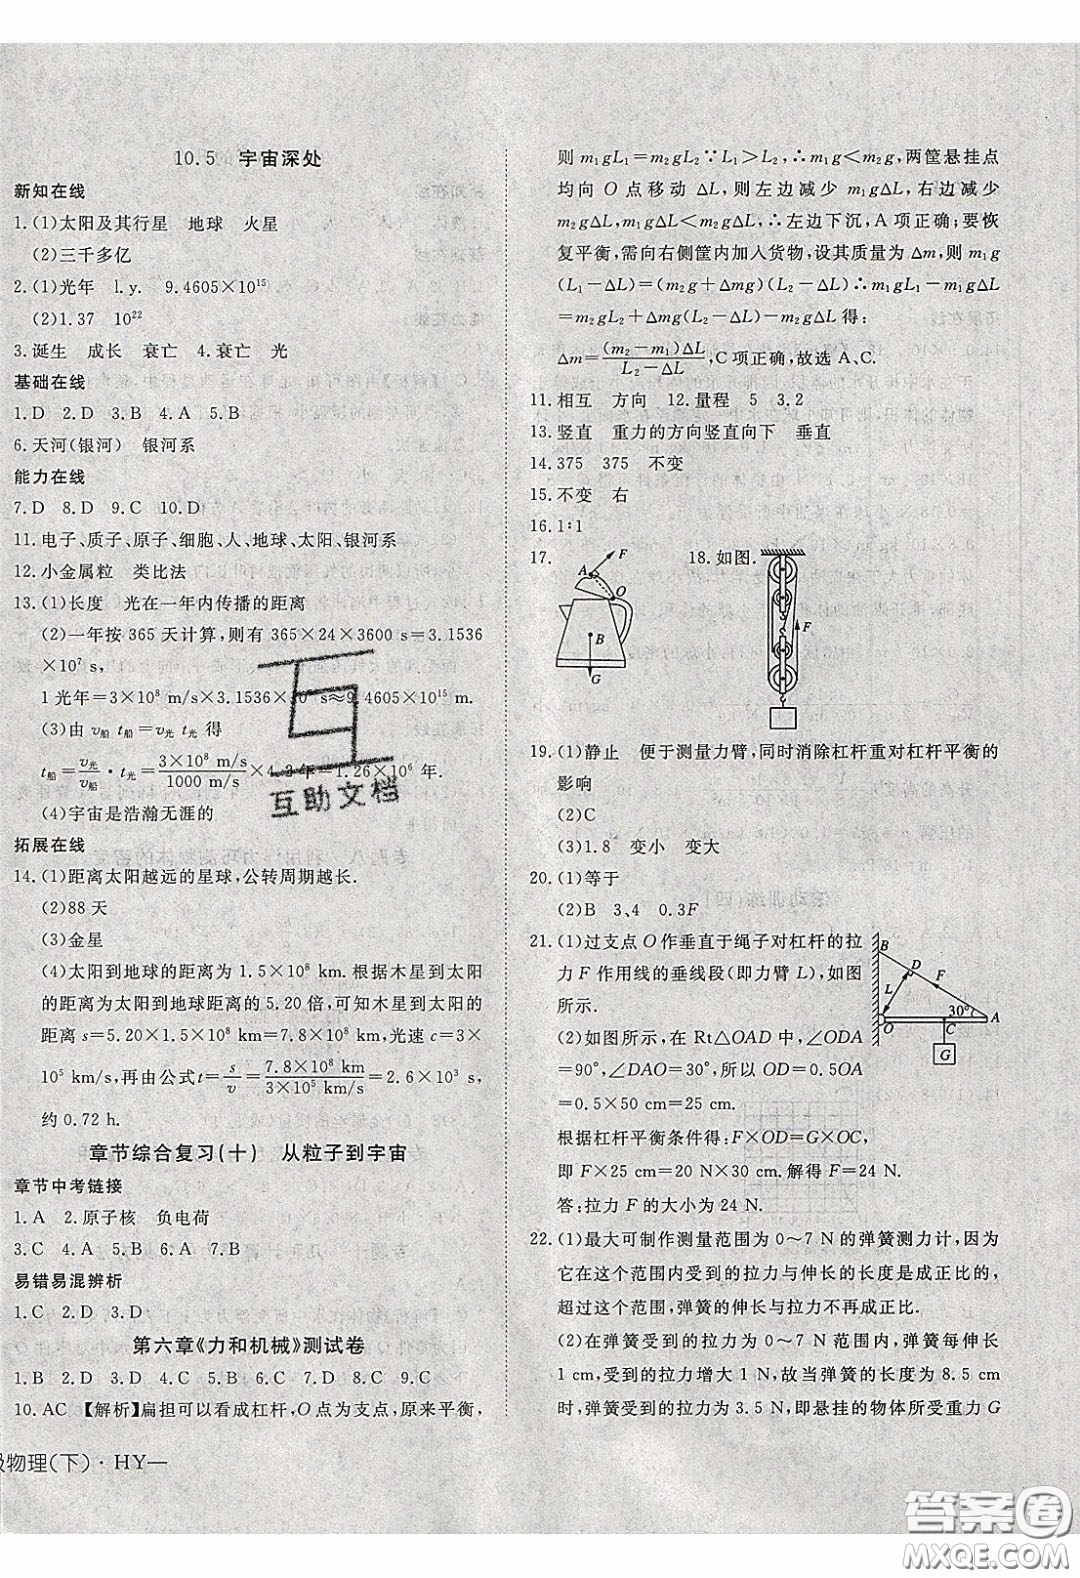 10.5 宇宙深处
新知在线
1.(1)太阳及其行星 地球 火星
(2)三千多亿
2.(1)光年 l.y. 9.4605×10¹⁵
(2)1.37 10²²
3.诞生 成长 衰亡 4.衰亡 光
基础在线
1.D 2.D 3.B 4.A 5.B
6.天河(银河) 银河系
能力在线
7.D 8.D 9.C 10.D
11.电子、质子、原子、细胞、人、地球、太阳、银河系
12.小金属粒 类比法
13.(1)长度 光在一年内传播的距离
(2)一年按 365 天计算,则有 365×24×3600 s=3.1536
×10⁷ s,
1光年=3×10⁸ m/s×3.1536×10⁷ s≈9.4605×10¹⁵ m.
(3)由 v船 t船=v光 t光 得
t船=v光/v船·t光=3×10⁸ m/s/1000 m/s×4.2年=1.26×10⁶ 年.
(4)宇宙是浩瀚无涯的
拓展在线
14.(1)距离太阳越远的星球,公转周期越长.
(2)88 天
(3)金星
(4)太阳到地球的距离为 1.5×10⁸ km.根据木星到太阳
的距离为太阳到地球距离的 5.20 倍,可知木星到太阳的
距离 s=5.20×1.5×10⁸ km=7.8×10⁸ km,光速 c=3×
10⁵ km/s,再由公式 t=s/v=7.8×10⁸ km/3×10⁵ km/s=2.6×10³ s,
约 0.72 h.
章节综合复习(十) 从粒子到宇宙
章节中考链接
1.A 2.原子核 负电荷
3.C 4.A 5.B 6.A 7.B
易错易混辨析
1.C 2.D 3.D
第六章《力和机械》测试卷
1.B 2.D 3.D 4.C 5.C 6.C 7.D 8.C 9.C
10.AC 【解析】扁担可以看成杠杆,O点为支点,原来平衡,
级物理(下)·HY—
则 m₁gL₁=m₂gL₂∵L₁>L₂,∴m₁g<m₂g,两筐悬挂点
均向 O 点移动 ΔL,则左边减少 m₁gΔL,右边减少
m₂gΔL,m₁gΔL<m₂gΔL,∴左边下沉,A 项正确;要恢
复平衡,需向右侧筐内加入货物,设其质量为 Δm,则 m₁g
(L₁-ΔL)=(m₂g+Δmg)(L₂-ΔL),∴m₁gL₁-m₁gΔL
=m₂gL₂+ΔmgL₂-m₂gΔL-ΔmgΔL 得:
Δm=(m₂-m₁)ΔL/L₂-ΔL,C 项正确,故选 A、C.
11.相互 方向 12.量程 5 3.2
13.竖直 重力的方向竖直向下 垂直
14.375 375 不变
15.不变 右
16.1∶1
17. 18.如图.
A F O B G
F
19.(1)静止 便于测量力臂,同时消除杠杆重对杠杆平衡的
影响
(2)C
(3)1.8 变小 变大
20.(1)等于
(2)B 3、4 0.3F
21.(1)过支点 O 作垂直于绳子对杠杆的拉
力 F 作用线的垂线段(即力臂 L),如图
所示.
(2)如图所示,在 Rt△OAD 中,∠ODA
=90°,∠DAO=30°,所以 OD=0.5OA
=0.5×50 cm=25 cm.
B D F L 30° O C A G
根据杠杆平衡条件得:F×OD=G×OC,
即 F×25 cm=20 N×30 cm.解得 F=24 N.
答:拉力 F 的大小为 24 N.
22.(1)最大可制作测量范围为 0～7 N 的弹簧测力计,因为它
在这个范围内受到的拉力与伸长的长度是成正比的,
超过这个范围,弹簧的伸长与拉力不再成正比.
(2)在弹簧受到的拉力在 0～7 N 范围内,弹簧每伸长
1 cm,受到的拉力增大 1 N,故当弹簧的长度为 8.5 cm
时弹簧受到的拉力为 3.5 N,即悬挂的物体所受重力 G
互助文档
答案卷
MXQE.COM